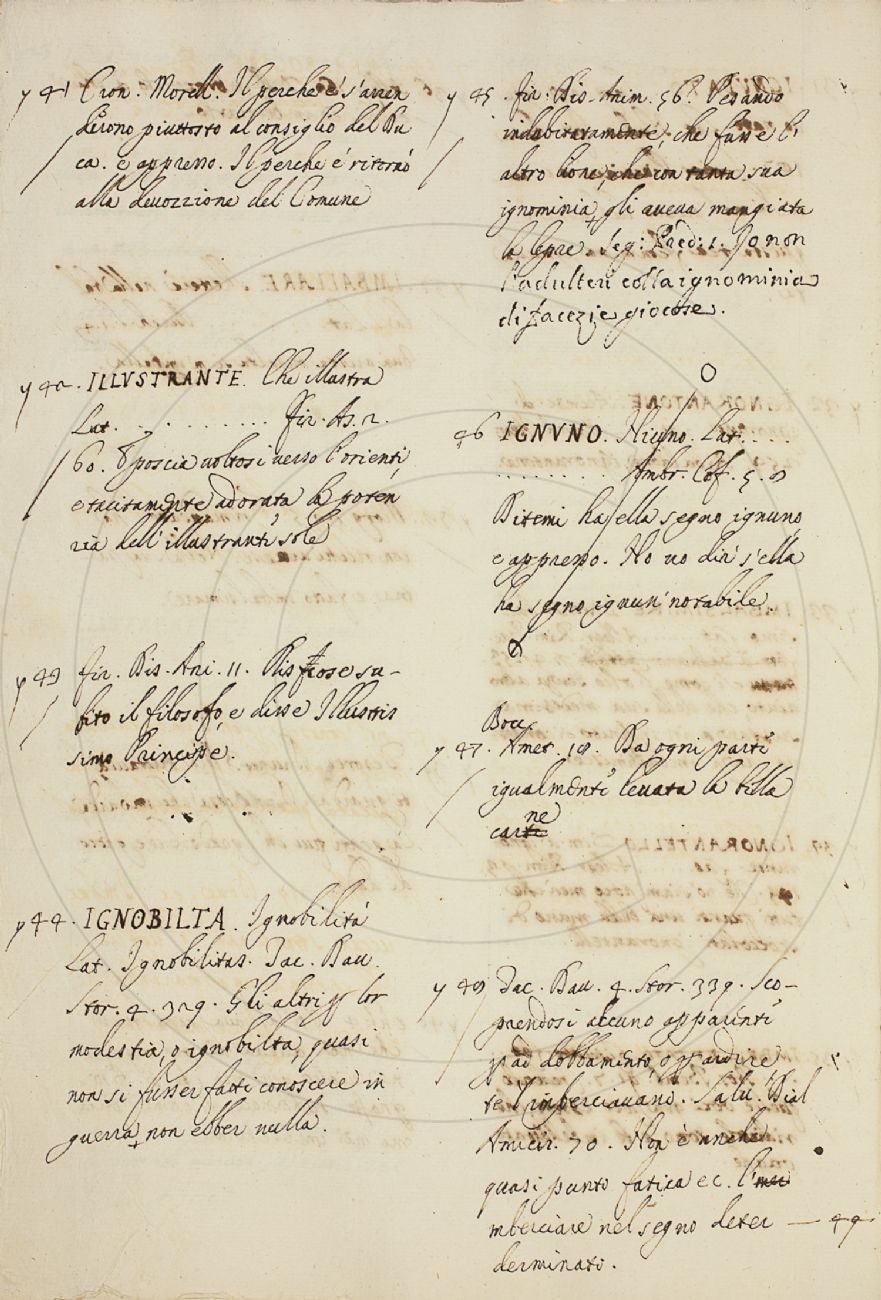 41 Cron. Morell. Il perchè e' s'arren
derono piuttosto al consiglio del Du
ca. e appresso. Il perchè è ritornò
alla devozzione del Comune
42. ILLVSTRANTE. Che illustra
Lat. . . . . . . . . . . Fir. As. 2.
60. E poscia voltosi verso l'orienti,
e tacitamente adorata la poten
zia dell'illustranti sole
43 Fir. Dis. Ani. 11. Risposesu-
bito il filosofo, e disse Illustris
simo Principe.
44. IGNOBILTA. Ignobilità
Lat. Ignobilitas. Dac. Dav.
Stor. 4. 329. Gli altri p lor
modestia, o ignobilta, quasi
non si fusser fatti conoscere in
guerra, non ebber nulla.
45. Fir. Dis. Anim. 56.
indubitatamente, che fusse l'
altro lione, che con tanta sua
ignominia, gli aveva mangiata
la lepre. Seg: Pred: 1. Io non
l'adulteri colla ignominia
di facezie giocose.
46 IGNVNO. Niuno. Lat. . . . .
. . . . . . . . Ambr. Cof. 5. 2
Ditemi ha ella segno ignuno,
e appresso. Ho vo dir s'ella
ha segno ignun' notabile.
Bocc.
47. Amet. 18. Da ogni parti
igualmenti levata la bella
ne
carti
48 Dac. Dav. 4. Stor. 339. Sco-
prendosi alcuno apparenti
p addobbamento, o p ardire
te l'imberciavano. Salv. Dial
Amiciz. 70. Non è anche
quasi punto fatica ec. l'
mberciare nel segno deter — 49
derminato.